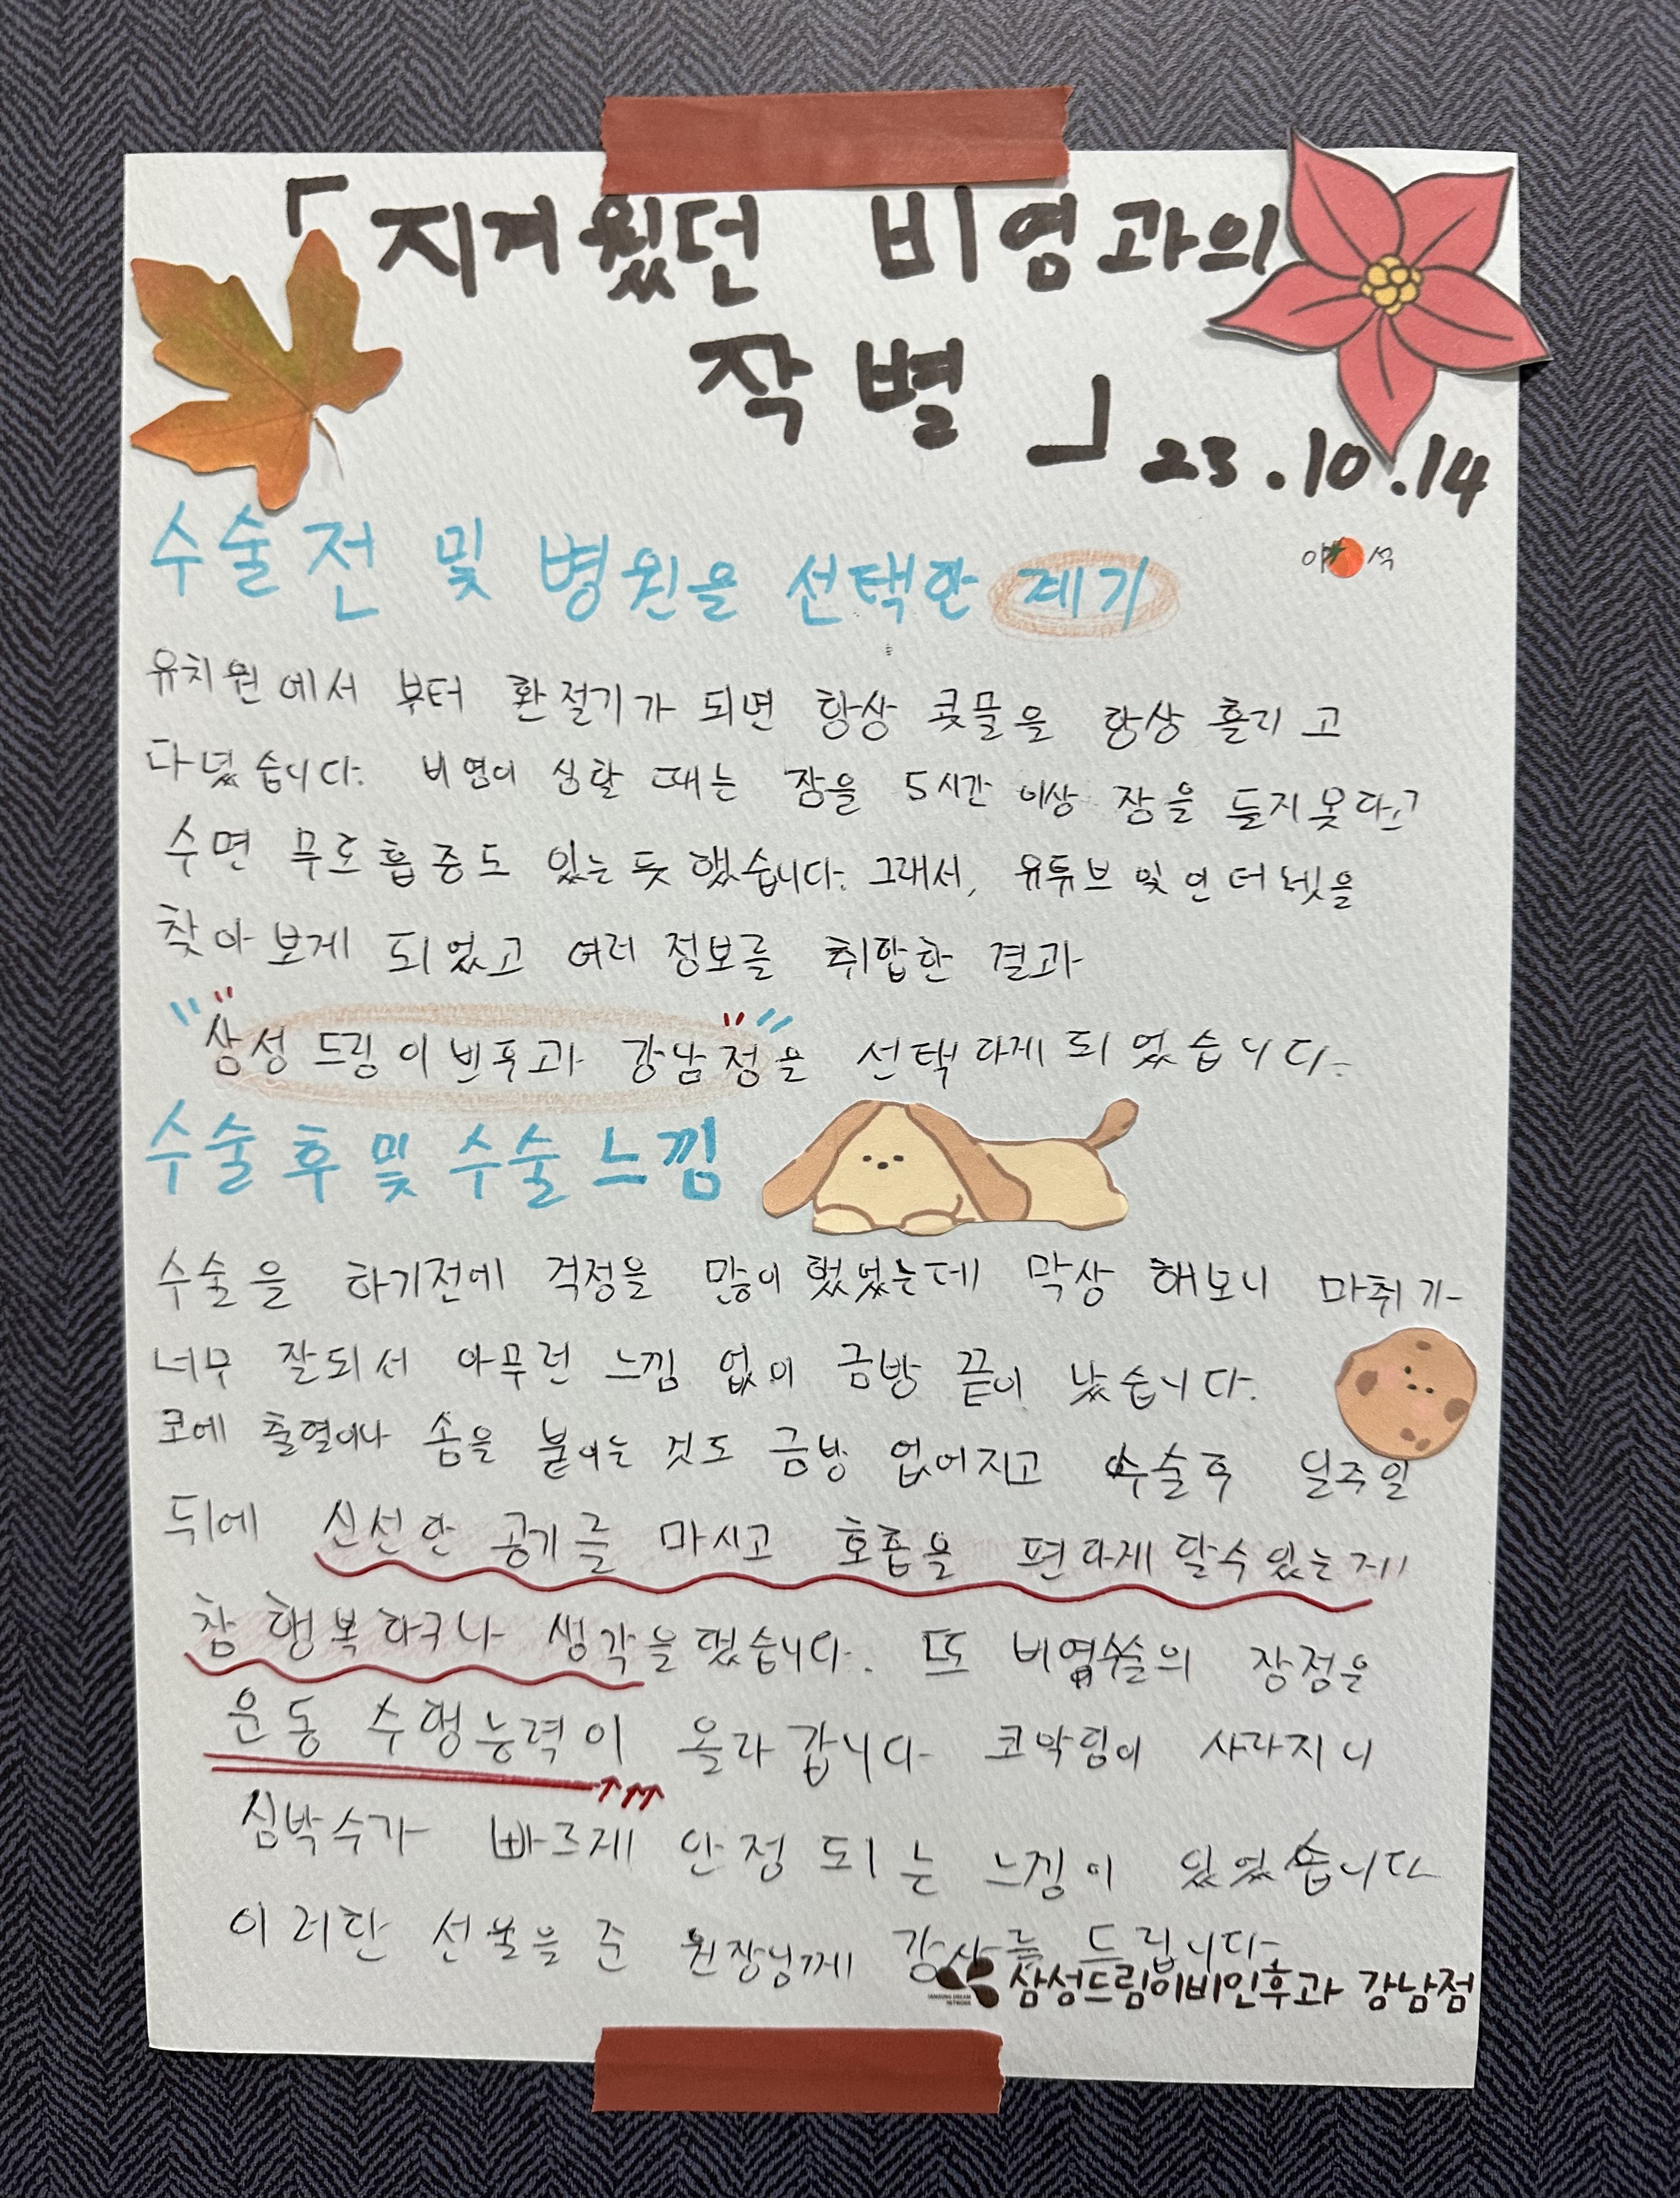 「지겨웠던 비염과의
작별」 23.10.14
이 석
수술전 및 병원을 선택한 계기
유치원에서 부터 환절기가 되면 항상 콧물을 항상 흘리고
다녔습니다. 비염이 심할 때는 잠을 5시간 이상 잠을 들지못하고
수면 무호흡증도 있는듯 했습니다. 그래서, 유튜브 및 인터넷을
찾아보게 되었고 여러 정보를 취합한 결과
"삼성드림이빈후과 강남점"을 선택하게 되었습니다.
수술후 및 수술느낌
수술을 하기전에 걱정을 많이 했었는데 막상 해보니 마취가
너무 잘되서 아무런 느낌 없이 금방 끝이 났습니다.
코에 출혈이나 솜을 붙이는 것도 금방 없어지고 수술후 일주일
뒤에 신선한 공기를 마시고 호흡을 편하게 할수있는게
참 행복하구나 생각을 했습니다. 또 비염수술의 장점은
운동 수행능력이 올라갑니다 코막힘이 사라지니
심박수가 빠르게 안정되는 느낌이 있었습니다
이러한 선물을 준 원장님께 감사를 드립니다.
SAMSUNG DREAM NETWORK 삼성드림이비인후과 강남점